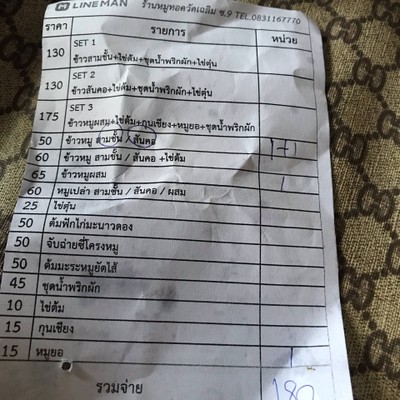 LINEMAN ร้านหมูทอดวัดเฉลิม ซ.9 TEL.0831167770
ราคา รายการ หน่วย
130 SET 1
ข้าวสามชั้น+ไข่ต้ม+ชุดน้ำพริกผัก+ไข่ตุ๋น
130 SET 2
ข้าวสันคอ+ไข่ต้ม+ชุดน้ำพริกผัก+ไข่ตุ๋น
175 SET 3
ข้าวหมูผสม+ไข่ต้ม+กุนเชียง+หมูยอ+ชุดน้ำพริกผัก
50 ข้าวหมู สามชั้น / สันคอ 1+1
60 ข้าวหมู สามชั้น / สันคอ +ไข่ต้ม
65 ข้าวหมูผสม 1
60 หมูเปล่า สามชั้น / สันคอ / ผสม
25 ไข่ตุ๋น
50 ต้มฟักไก่มะนาวดอง
50 จับฉ่ายซี่โครงหมู
50 ต้มมะระหมูยัดไส้
45 ชุดน้ำพริกผัก
10 ไข่ต้ม
15 กุนเชียง
15 หมูยอ 1
รวมจ่าย 180